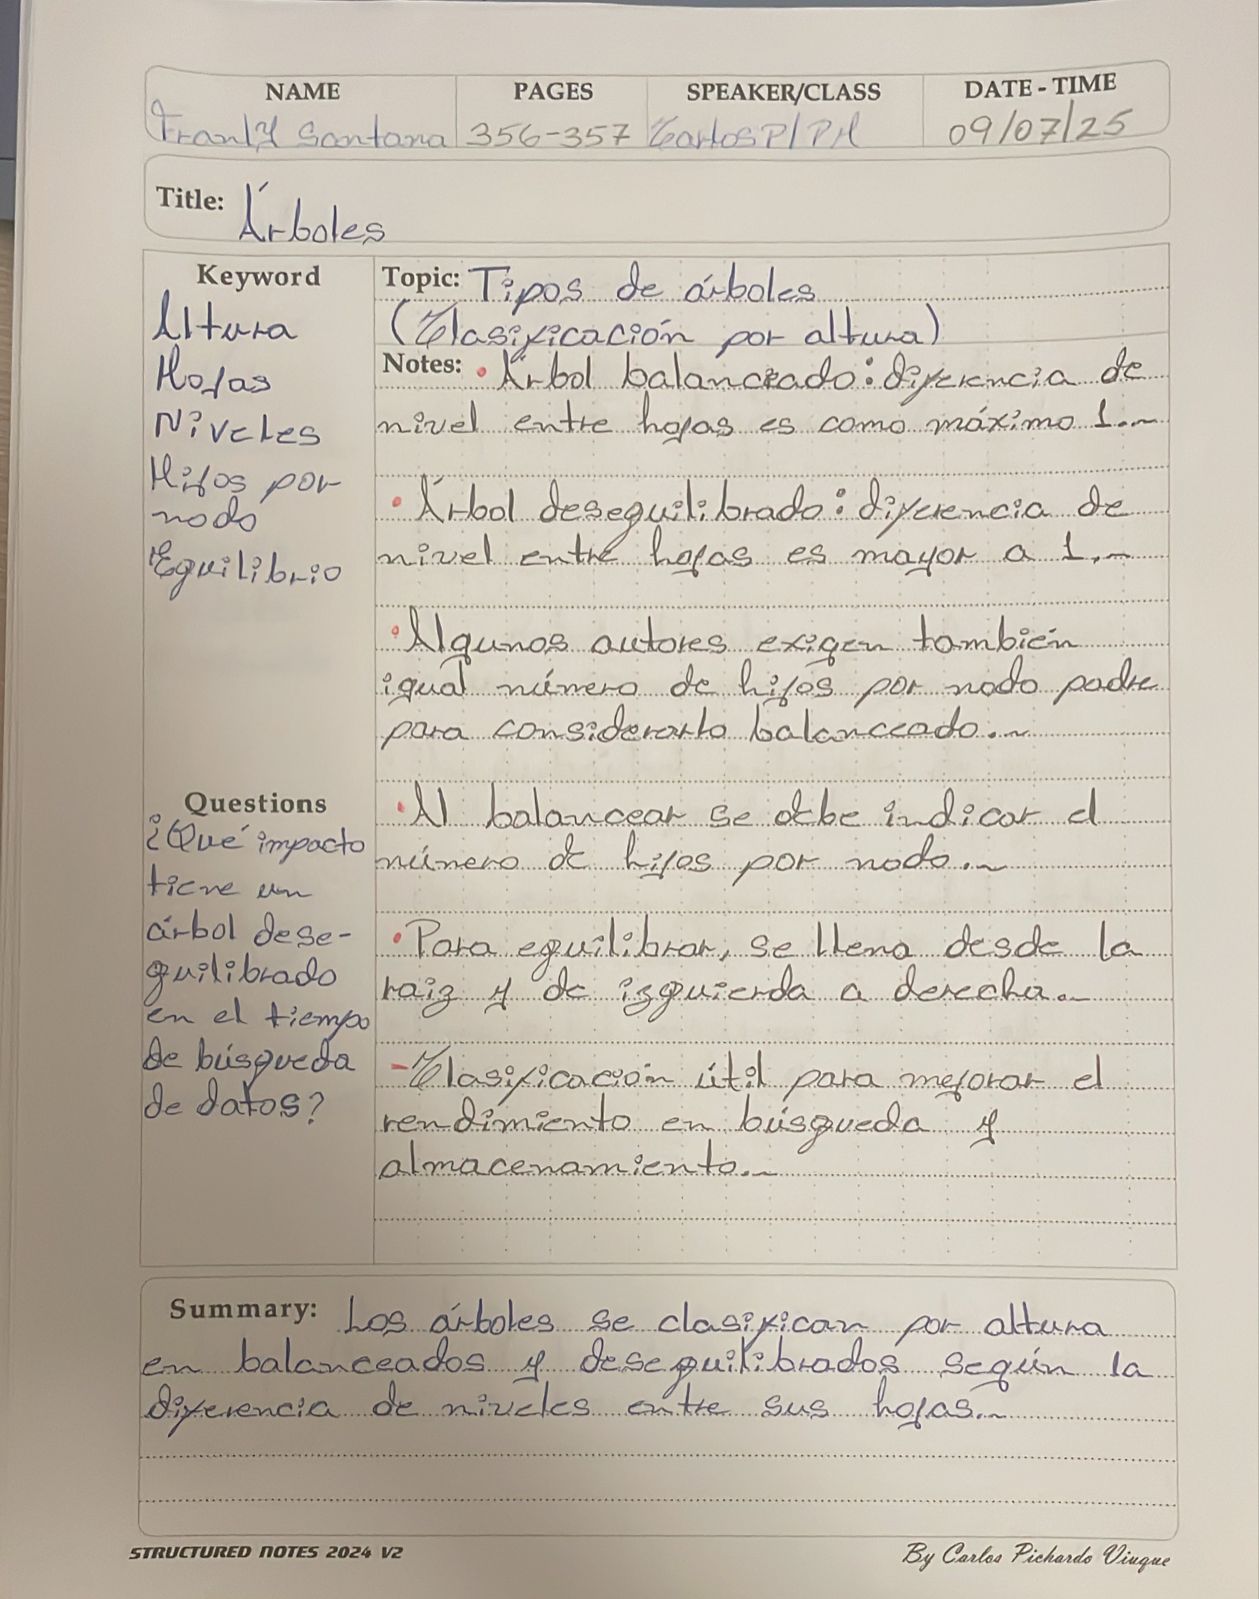 NAME PAGES SPEAKER/CLASS DATE - TIME
Franly Santana 356-357 Carlos P/ PM 09/07/25
Title: Árboles
Keyword
Altura
Hojas
Niveles
Hijos por
nodo
Equilibrio
Questions
¿Qué impacto
tiene un
árbol dese-
quilibrado
en el tiempo
de búsqueda
de datos?
Topic: Tipos de árboles
(Clasificación por altura)
Notes: • Árbol balanceado: diferencia de
nivel entre hojas es como máximo 1.~
• Árbol desequilibrado: diferencia de
nivel entre hojas es mayor a 1.~
• Algunos autores exigen también
igual número de hijos por nodo padre
para considerarlo balanceado.~
• Al balancear se debe indicar el
número de hijos por nodo.~
• Para equilibrar, se llena desde la
raiz y de izquierda a derecha.~
- Clasificación útil para mejorar el
rendimiento en búsqueda y
almacenamiento.~
Summary: Los árboles se clasifican por altura
en balanceados y desequilibrados según la
diferencia de niveles entre sus hojas.~
STRUCTURED NOTES 2024 V2 By Carlos Pichardo Viuque